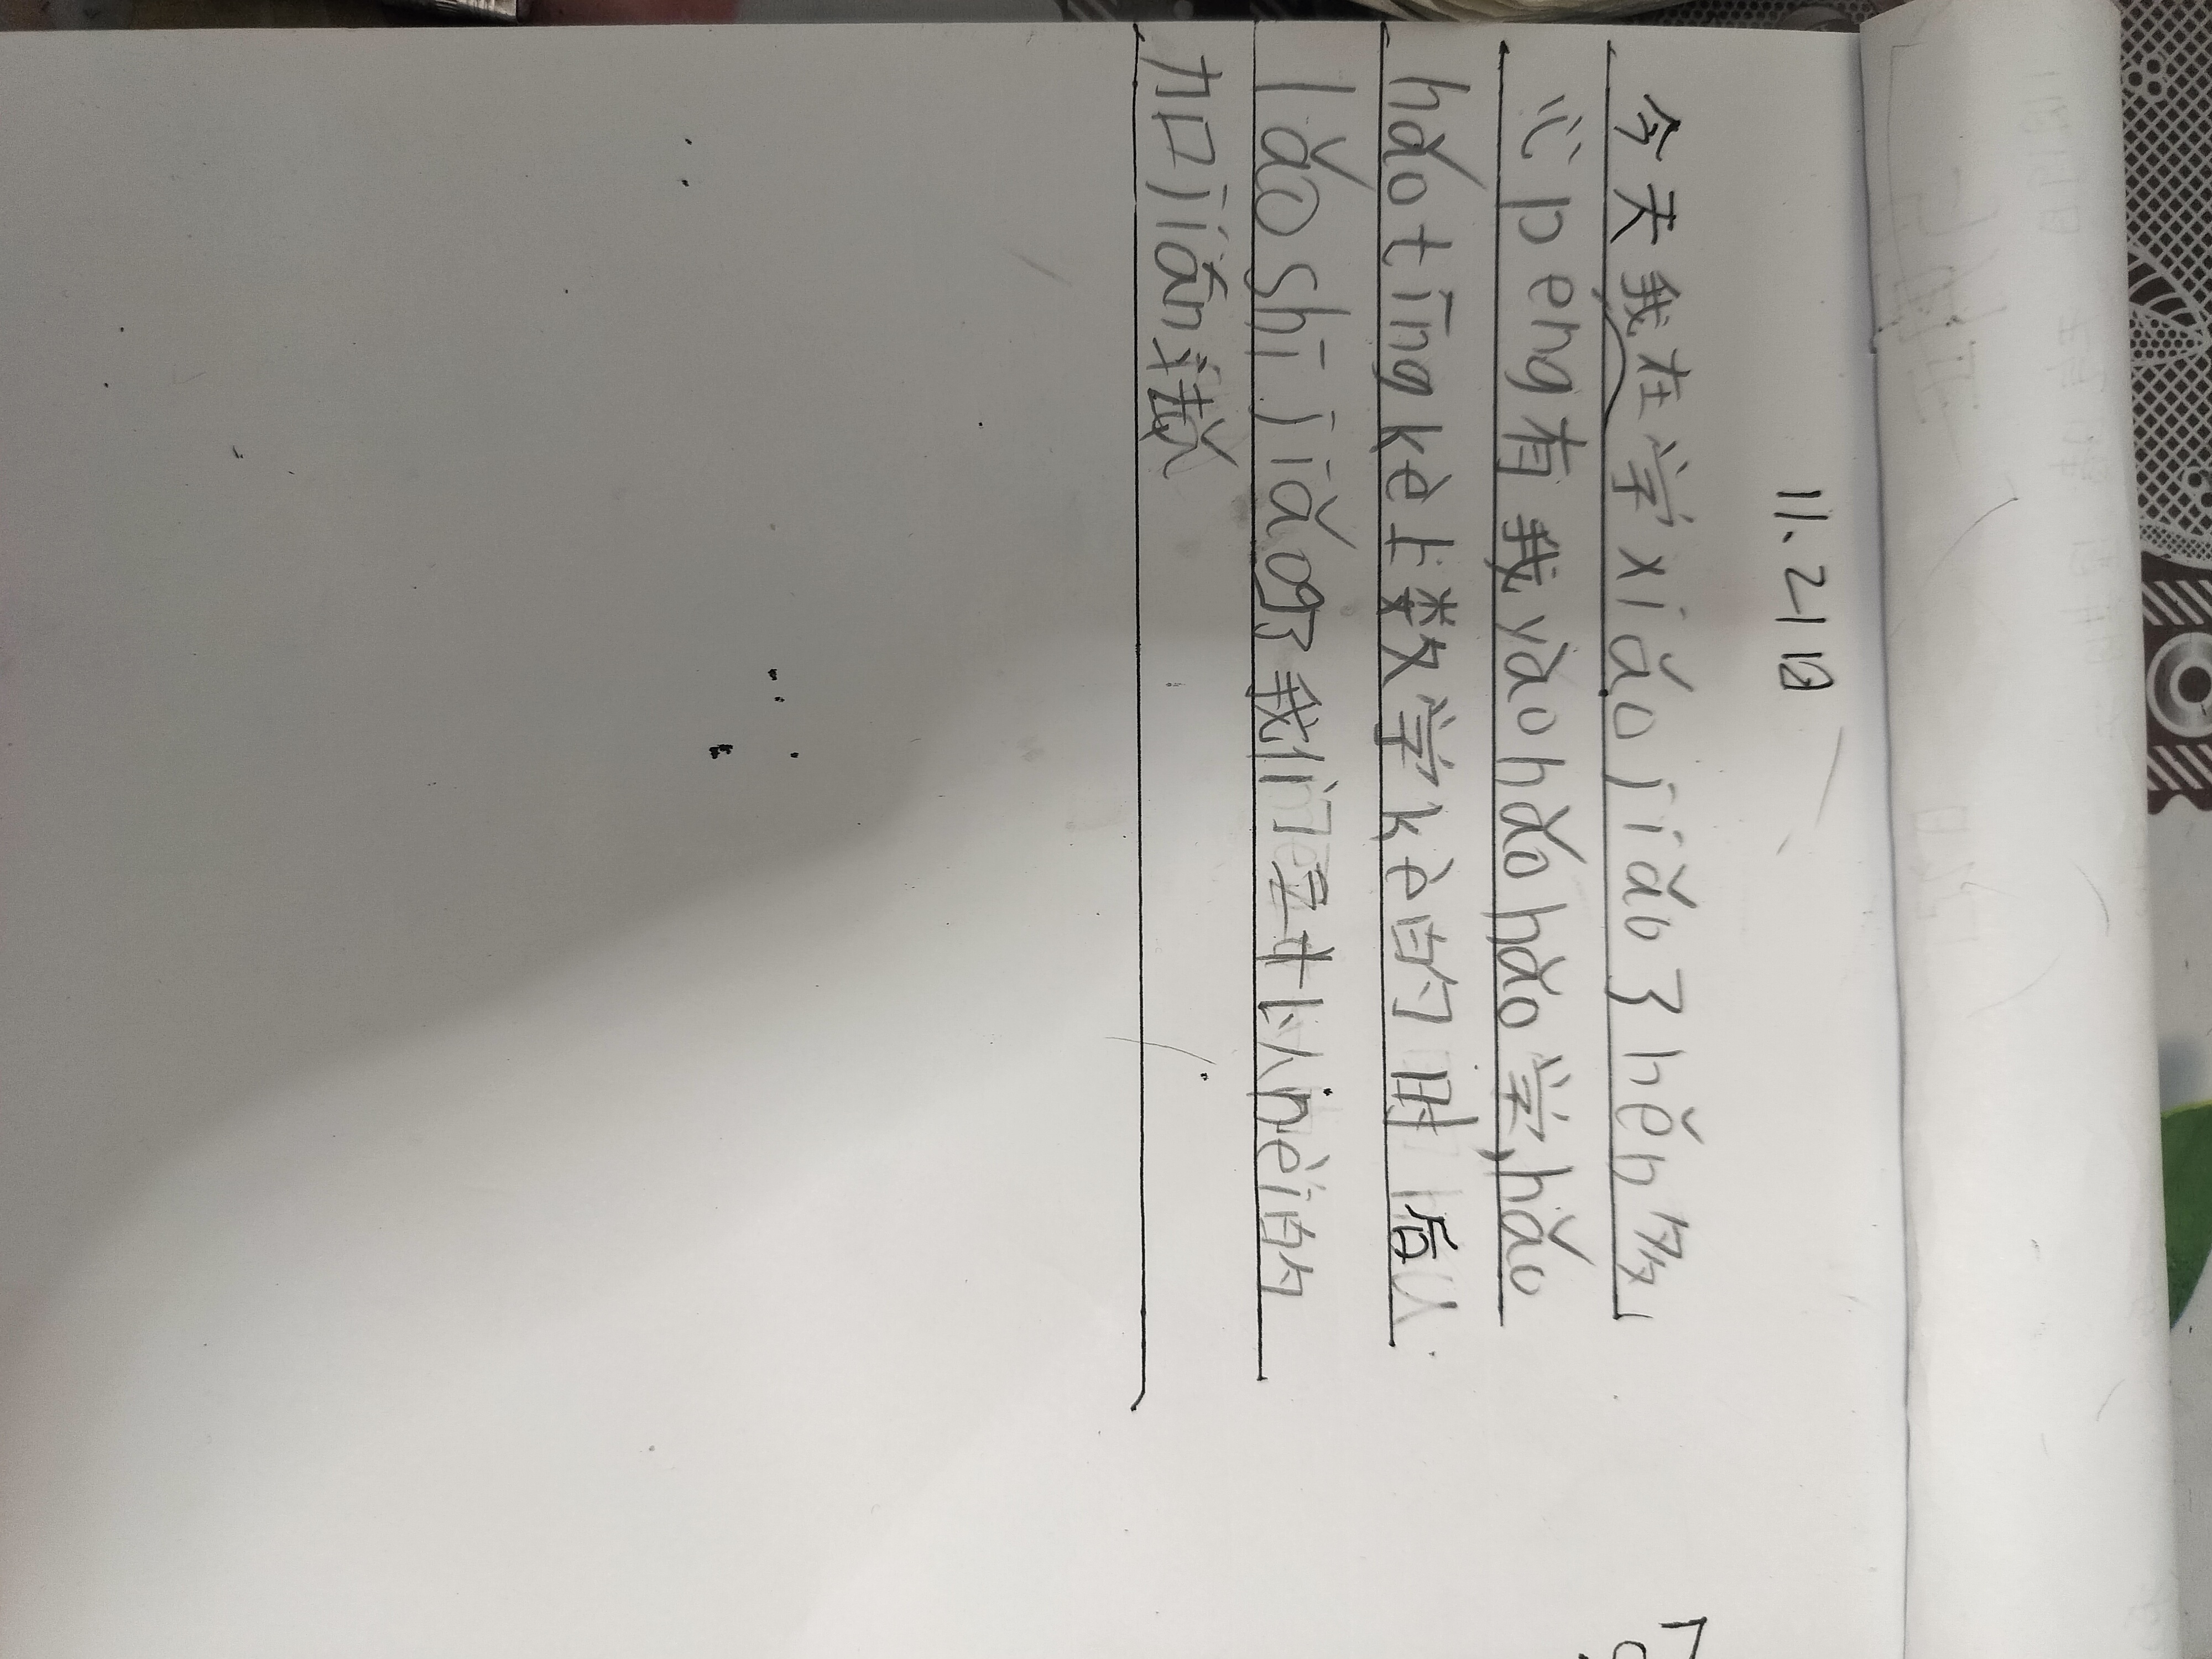 11.21日
今天我在学xiáojiǎo了hěn多
心peng有我yàohǎohǎo学,hǎo
hǎotīngkè上数学kè的时后
lǎoshījiǎo了我们是十以nèi的
加jiǎn法